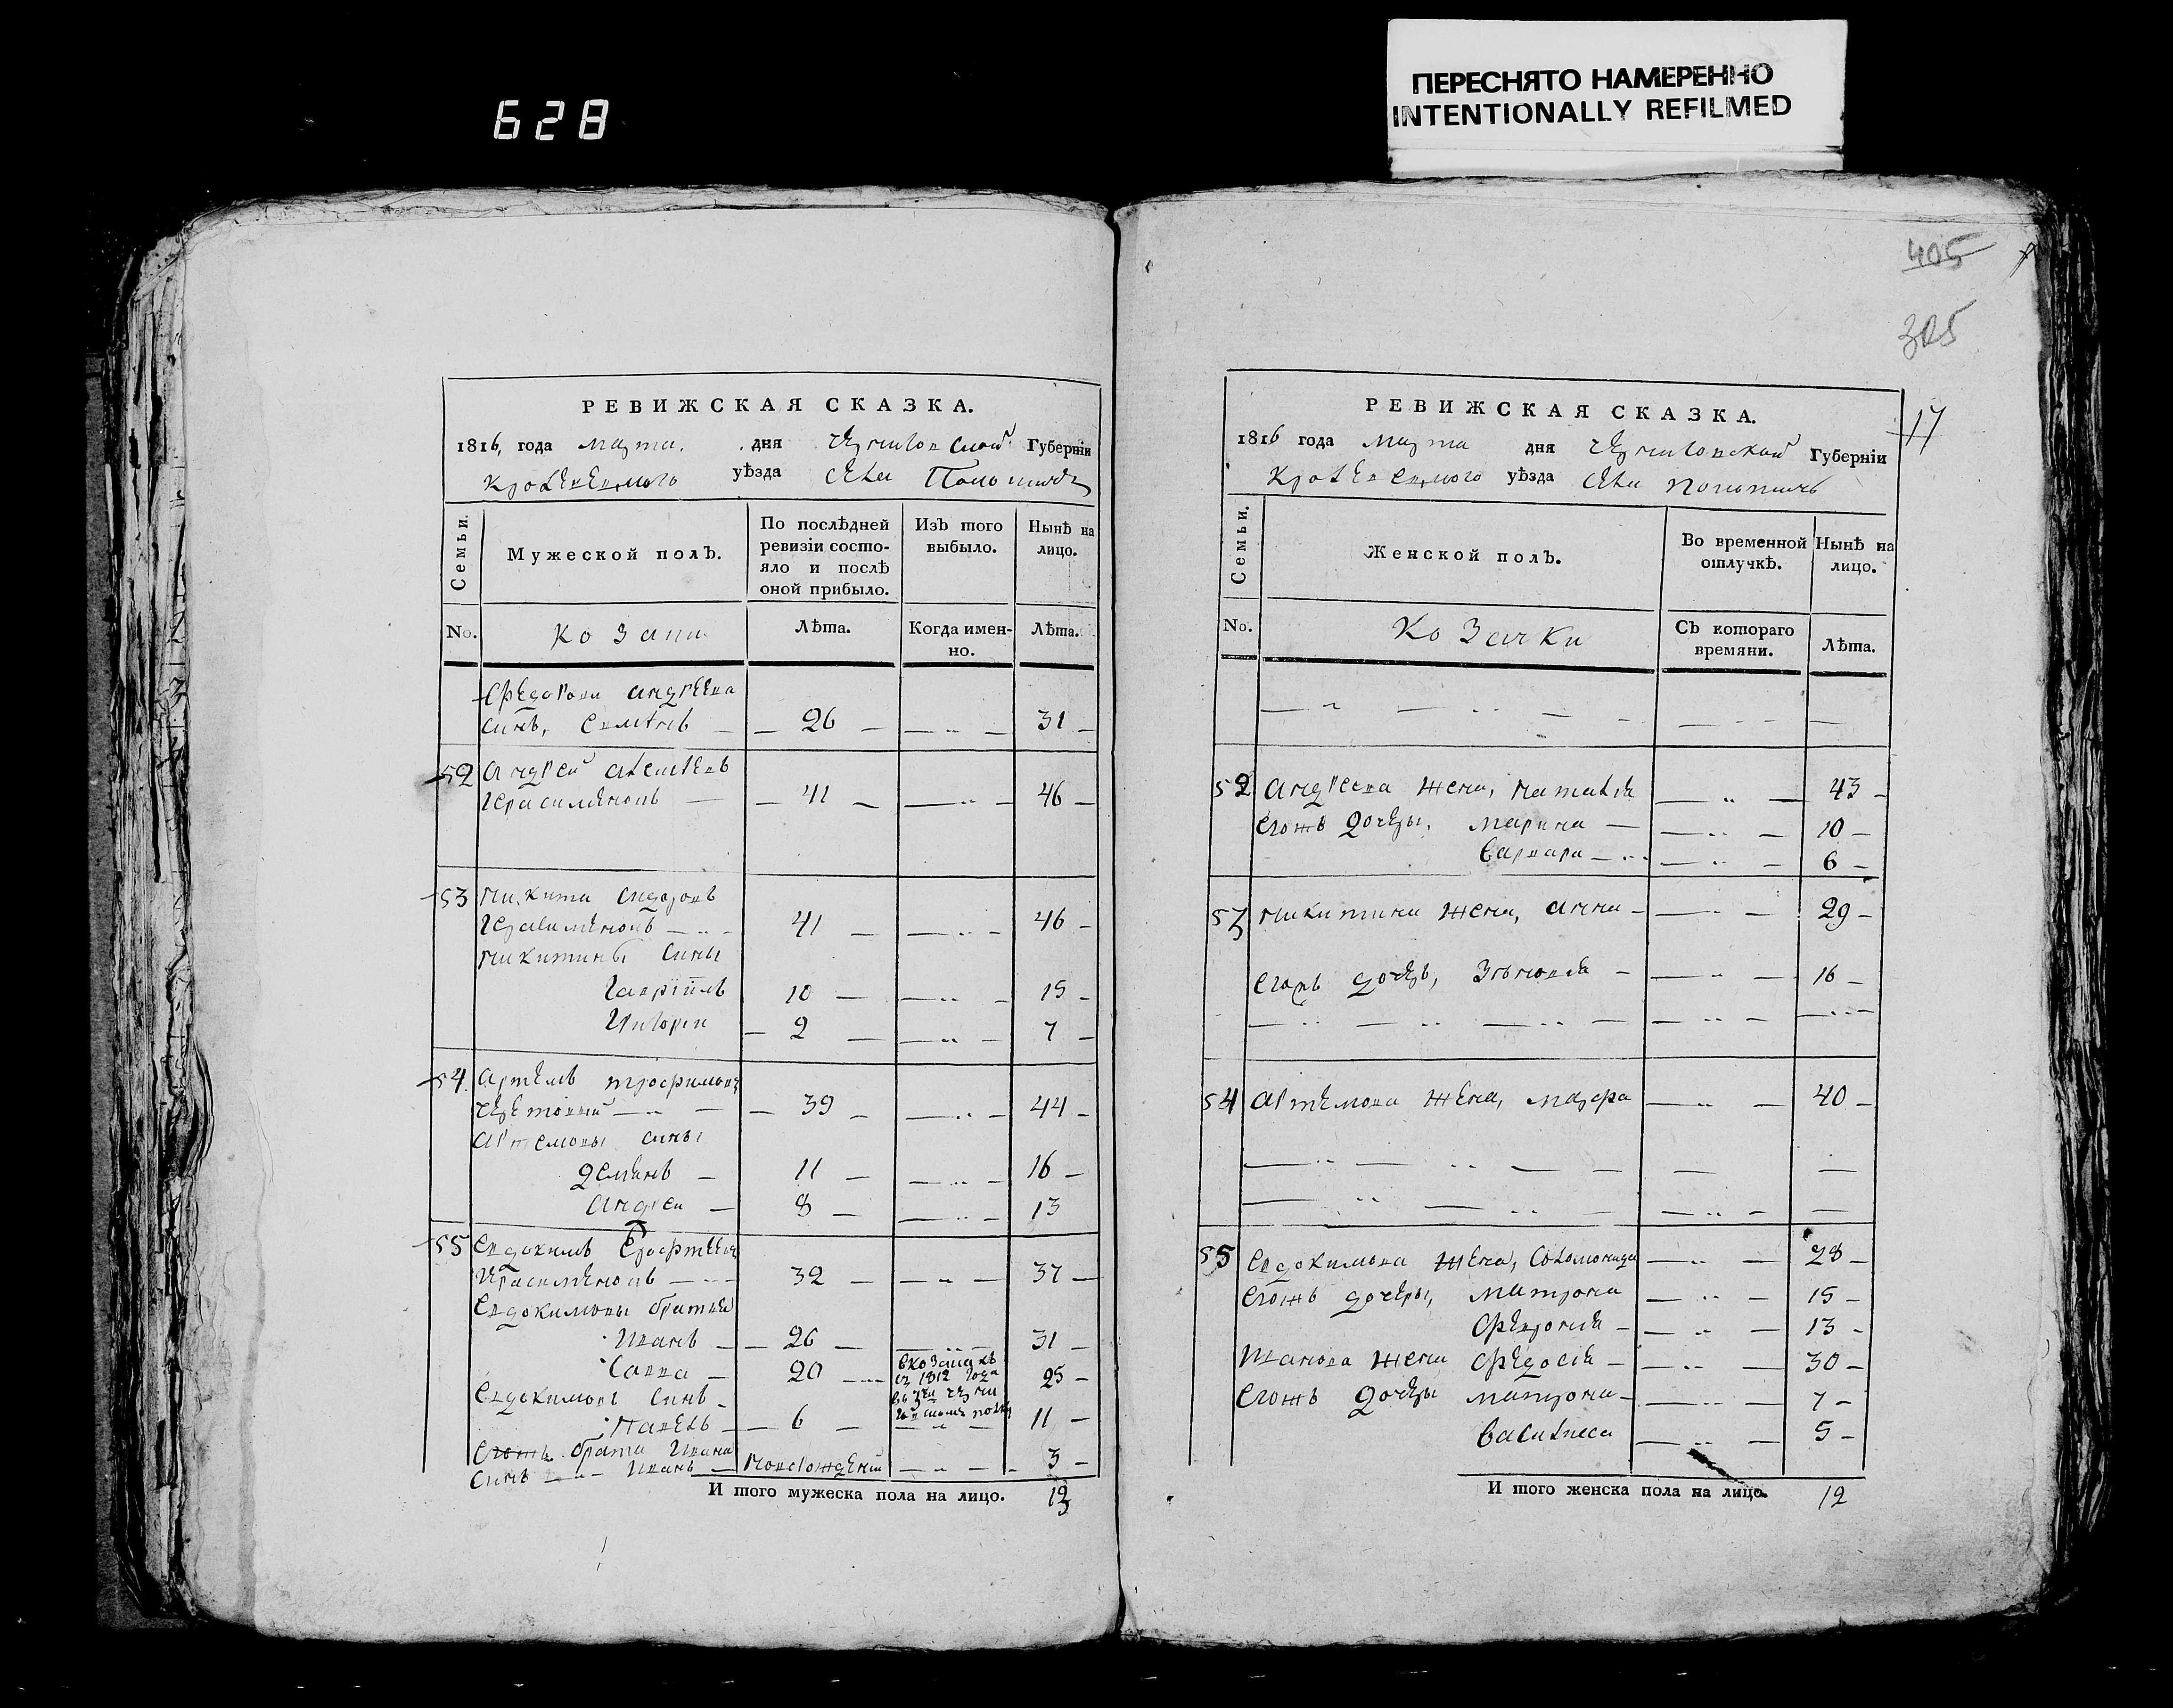 628
ПЕРЕСНЯТО НАМЕРЕННО
INTENTIONALLY REFILMED
405
305
17
РЕВИЖСКАЯ СКАЗКА.
1816, года марта дня Черниговской Губерніи
Кролевецкого уѣзда села
Семьи.
Мужеской полъ.
По послѣдней ревизіи состо-
яло и послѣ оной прибыло.
Изъ того выбыло.
Нынѣ на лицо.
No.
Козаки
Лѣта.
Когда имен-
но.
Лѣта.
Федорова андреева
синъ, Семенъ — 26 — 31
52 Андрей алексеевъ
Герасименокъ — 41 — 46
53 Никита сидоровъ
Герасименокъ — 41 — 46
никитины сины
Гавріилъ 10 — 15
Григорій 2 — 7
54 Артемъ трофимовъ
39 — 44
артемовы сины
Демянъ — 11 — 16
Андреи — 8 — 13
55 Евдокимъ Ерофеевъ
Герасименокъ 32 — 37
Евдокимовы братья
Иванъ — 26 — 31
Савва — 20 — в козакахъ
съ 1812 года
25
Евдокимовъ синъ
Павелъ — 6 — 11
брата Ивана
синъ Иванъ — новорожденній — 3
И того мужеска пола на лицо. 13
РЕВИЖСКАЯ СКАЗКА.
1816 года марта дня Черниговской Губерніи
Кролевецкого уѣзда села
Семьи.
Женской полъ.
Во временной отлучкѣ.
Нынѣ на лицо.
No.
Козачки
Съ котораго времяни.
Лѣта.
52 Андреева жена, наталія 43
Егожъ дочеры, марина — 10
варвара — 6
53 никитина жена, анна — 29
Егожъ дочеръ, Зѣновія — 16
54 Артемова жена, марфа 40
55 Евдокимова жена, Соломонида 28
Егожъ дочеры, матрона 15
Феврония — 13
Иванова жена Федосія — 30
Егожъ дочеры матрона — 7
василиса 5
И того женска пола на лицо. 12